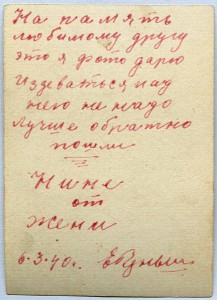 На память
любимому другу
это я фото дарю
Издеваться над
него не надо
лучше обратно
пошли
Нине
от
Жени
6.3.40г.